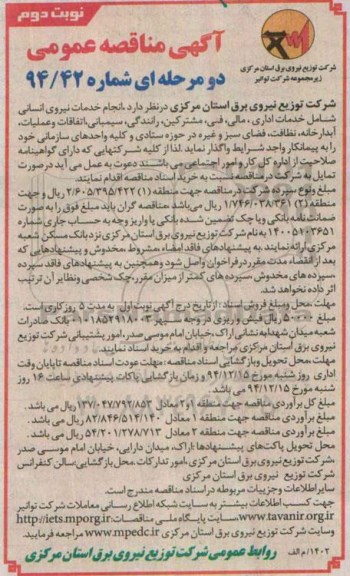 نوبت دوم
آگهی مناقصه عمومی
دو مرحله ای شماره ۹۴/۴۲
شرکت توزیع نیروی برق استان مرکزی
زیرمجموعه شرکت توانیر
شرکت توزیع نیروی برق استان مرکزی درنظر دارد ،انجام خدمات نیروی انسانی
شامل خدمات اداری ، مالی، فنی، مشترکین، رانندگی، سیمبانی،اتفاقات وعملیات،
آبدارخانه، نظافت، فضای سبز و غیره در حوزه ستادی و کلیه واحدهای سازمانی خود
را به پیمانکار واجد شرایط واگذار نماید .لذا از کلیه شرکتهایی که دارای گواهینامه
صلاحیت از اداره کل کار و امور اجتماعی می باشند دعوت به عمل می آید در صورت
تمایل به شرکت در مناقصه نسبت به خرید اسناد مناقصه اقدام نمایند.
مبلغ ونوع سپرده شرکت در مناقصه جهت منطقه (۱) ۲/۶۰۵/۳۹۵/۴۲۲ ریال و جهت
منطقه (۲) ۱/۷۴۶/۰۳۸/۳۶۱ ریال می باشد .مناقصه گران باید مبلغ فوق را به صورت
ضمانت نامه بانکی ویا چک تضمین شده بانکی یا واریز وجه به حساب جاری شماره
۱۴۰۰۵۱۰۳۶۵۱ به نام شرکت توزیع نیروی برق استان مرکزی نزد بانک مسکن شعبه
مرکزی ارائه نمایند .به پیشنهادهای فاقد امضاء ،مشروط ،مخدوش و پیشنهادهایی که
بعد از انقضاء مدت مقرر در فراخوان واصل شود وهمچنین به پیشنهادهای فاقد سپرده
،سپرده های مخدوش ،سپرده های کمتر از میزان مقرر،چک شخصی ونظایر آن ترتیب
اثر داده نخواهد شد.
مهلت ،محل ومبلغ فروش اسناد : از تاریخ درج آگهی نوبت اول به مدت ۵ روز کاری است.
شعبه میدان شهدا به نشانی اراک،خیابان امام موسی صدر،امور پشتیبانی شرکت توزیع
نیروی برق استان مرکزی مراجعه و اقدام به خرید اسناد نمایند.
مهلت ،محل تحویل وبازگشایی اسناد مناقصه : مهلت عودت اسناد مناقصه تاپایان وقت
اداری روز شنبه مورخ ۹۴/۱۲/۱۵ و زمان بازگشایی پاکات پیشنهادی ساعت ۱۶ روز
شنبه مورخ ۹۴/۱۲/۱۵ می باشد.
مبلغ کل برآوردی مناقصه جهت منطقه ۱و۲ معادل ۱۳۷/۰۴۷/۷۹۲/۸۵۳ ریال می باشد.
مبلغ برآوردی مناقصه جهت منطقه ۱ معادل ۸۲/۸۴۶/۵۱۴/۱۴۰ ریال می باشد.
مبلغ برآوردی مناقصه جهت منطقه ۲ معادل ۵۴/۲۰۱/۲۷۸/۷۱۳ ریال می باشد.
محل تحویل پاکت‌های پیشنهادها :اراک، میدان دارایی، خیابان امام موسی صدر
،شرکت توزیع نیروی برق استان مرکزی،امور تدارکات .محل بازگشایی،سالن کنفرانس
شرکت توزیع نیروی برق استان مرکزی
سایراطلاعات وجزییات مربوطه در اسناد مناقصه مندرج است.
جهت کسب اطلاعات بیشتر به سایت شبکه اطلاع رسانی معاملات شرکت توانیر
www.tavanir.org.ir،سایت پایگاه ملی مناقصات:http://iets.mporg.ir
وسایت شرکت توزیع نیروی برق استان مرکزی www.mpedc.ir مراجعه فرمایید.
۱۴۰۲/ م الف
روابط عمومی شرکت توزیع نیروی برق استان مرکزی